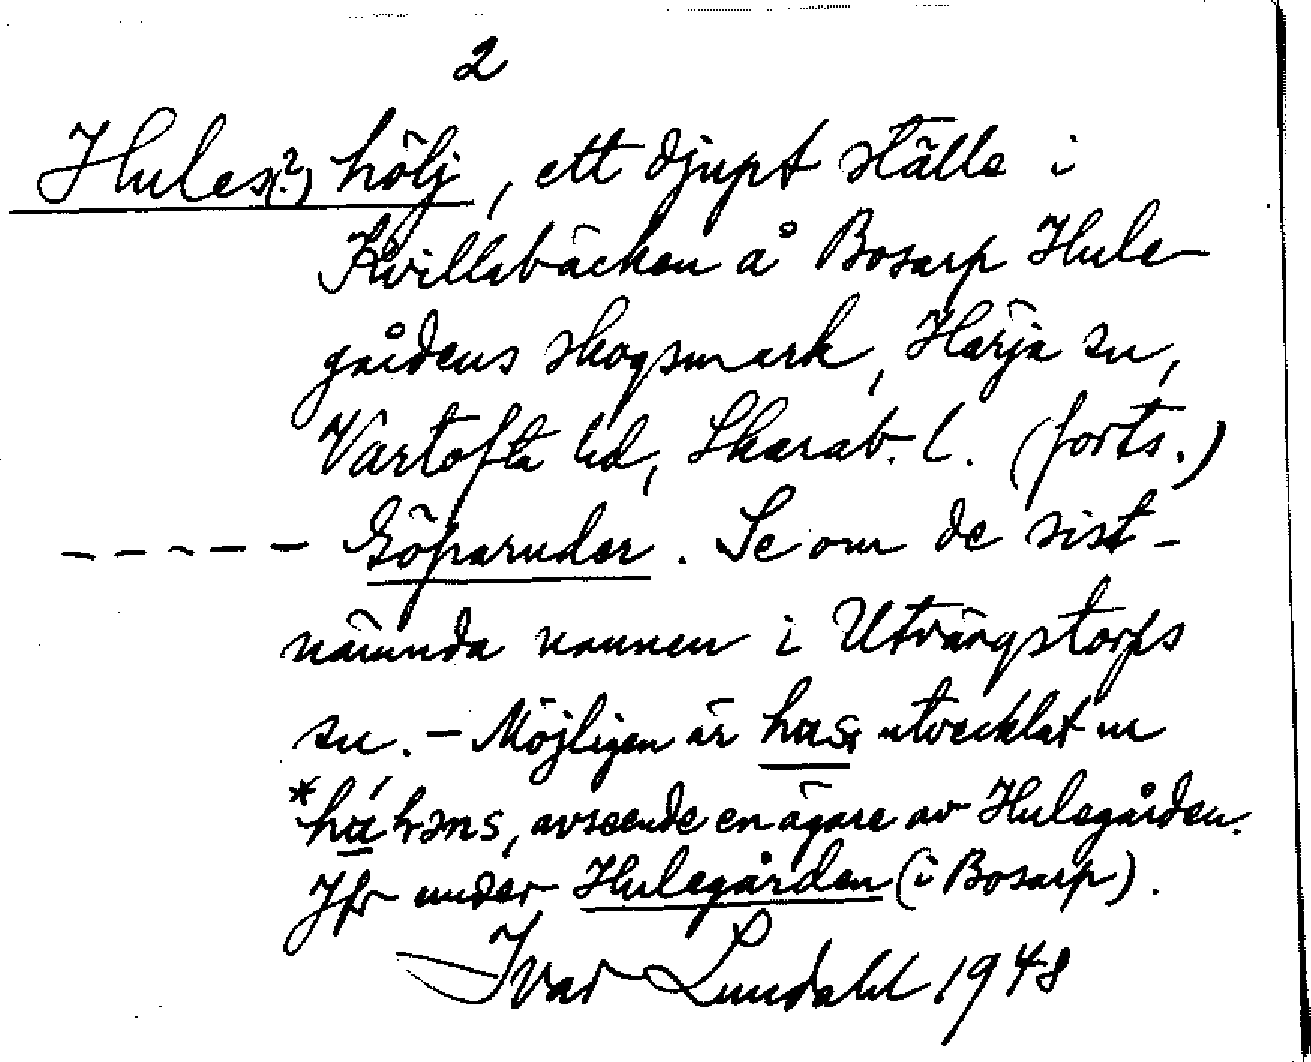 2
Hules(?) hölj, ett djupt ställe i
Kvillebäcken å Bosarp Hule-
gårdens skogsmark, Härja sn,
Vartofta hd, Skarab. l. (forts.)
- - - - - Göparudar. Se om de sist-
nämnda namnen i Utvängstorps
sn. – Möjligen är has utvecklat ur
avseende en ägare av Hulegården.
Jfr under Hulegården (i Bosarp).
Ivar Lundahl 1948